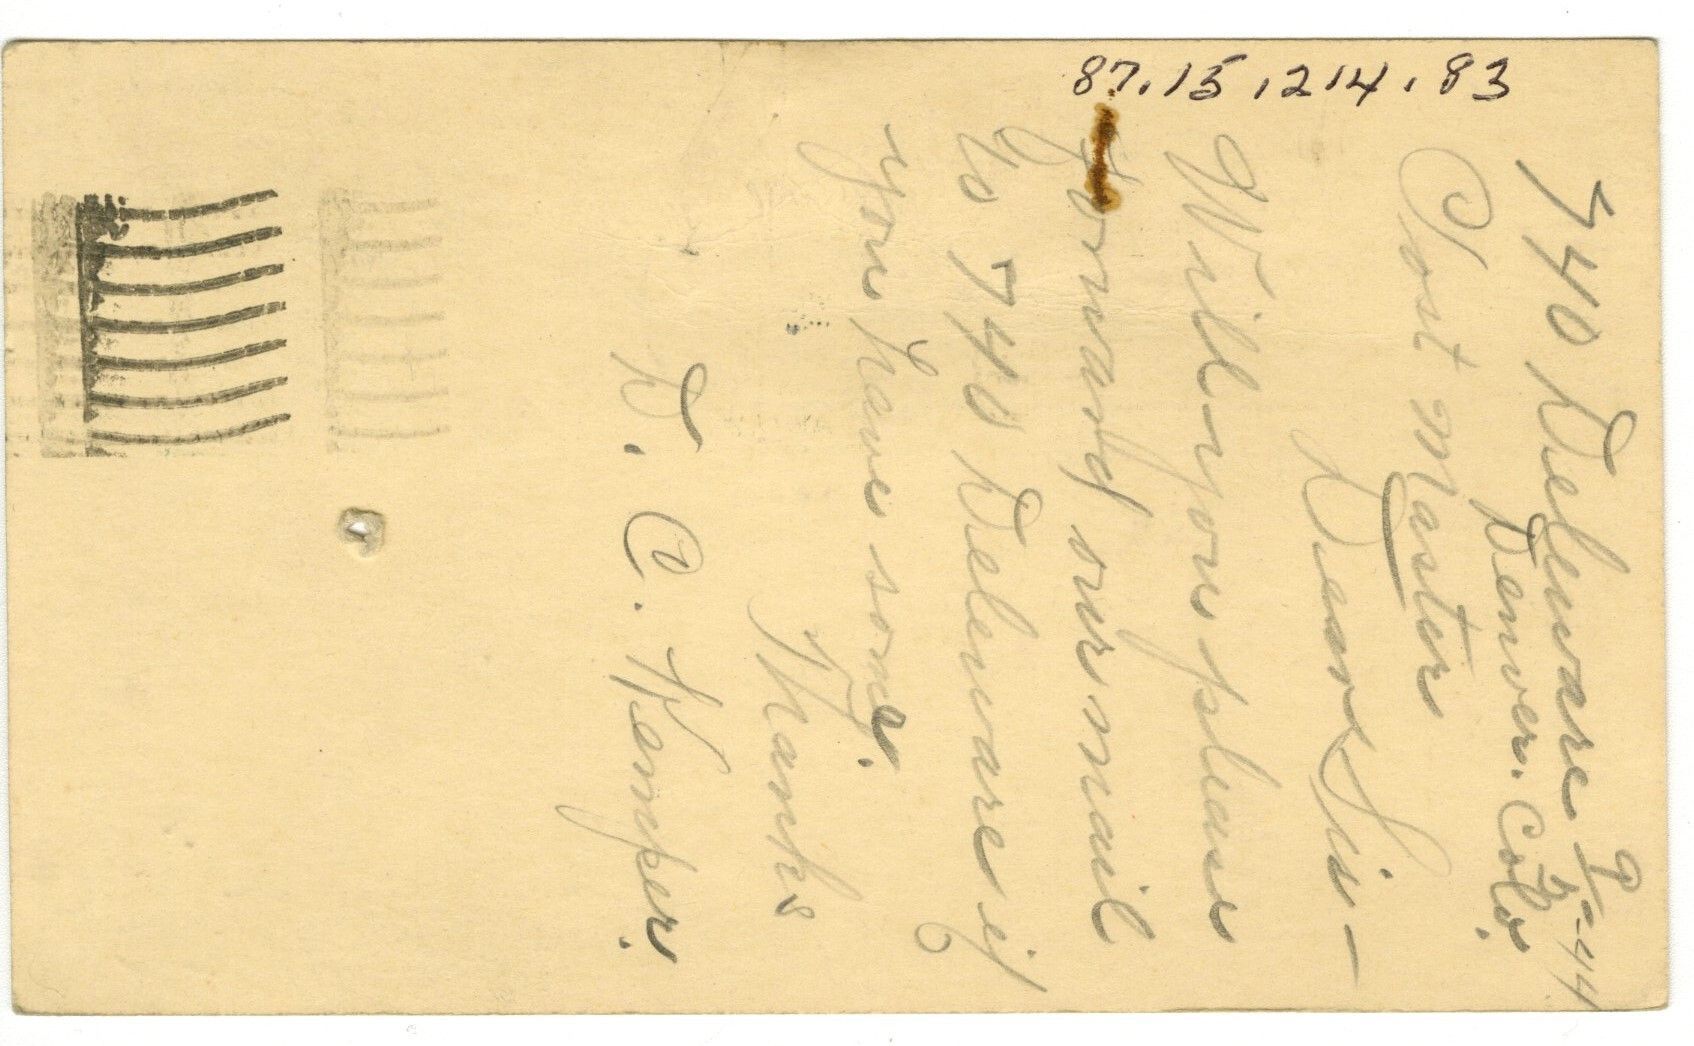 87.15.214.83
740 Deleware 9/5-44
Denver. Colo.
Post Master
Dear Sir –
Will you please
forward our mail
to 740 Deleware if
you have some.
Thanks
D. C. Kemper.